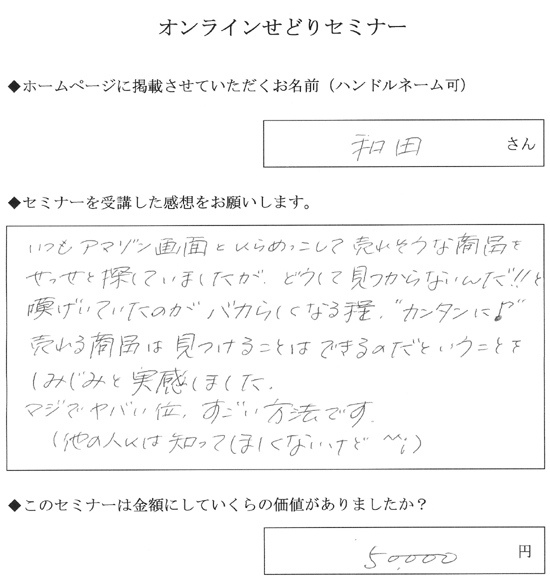 オンラインせどりセミナー
◆ホームページに掲載させていただくお名前（ハンドルネーム可）
和田 さん
◆セミナーを受講した感想をお願いします。
いつもアマゾン画面とにらめっこして売れそうな商品を
せっせと探していましたが、どうして見つからないんだ!!と
嘆げいていたのがバカらしくなる程、"カンタンに♪"
売れる商品は見つけることはできるのだということを
しみじみと実感しました.
マジでヤバい位、すごい方法です.
(他の人には知ってほしくないけど ^^;)
◆このセミナーは金額にしていくらの価値がありましたか？
50,000 円